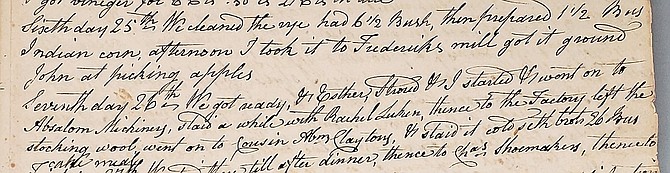 Sixth day 25th We cleaned the rye had 6 1/2 Bush, then prepared 1 1/2 Bus
Indian corn, afternoon I took it to Fredericks mill got it ground
John at picking apples
Seventh day 26th We got ready, & Esther, Stroud & I started & went on to
Absalom Micheners, staid a while with Rachel Luken, thence to the Factory left the
stocking wool, went on to Cousin Abm Claytons, & staid it cold, seth brot 26 Bus
Coal
till after dinner, thence to Chas Shoemakers, thence to